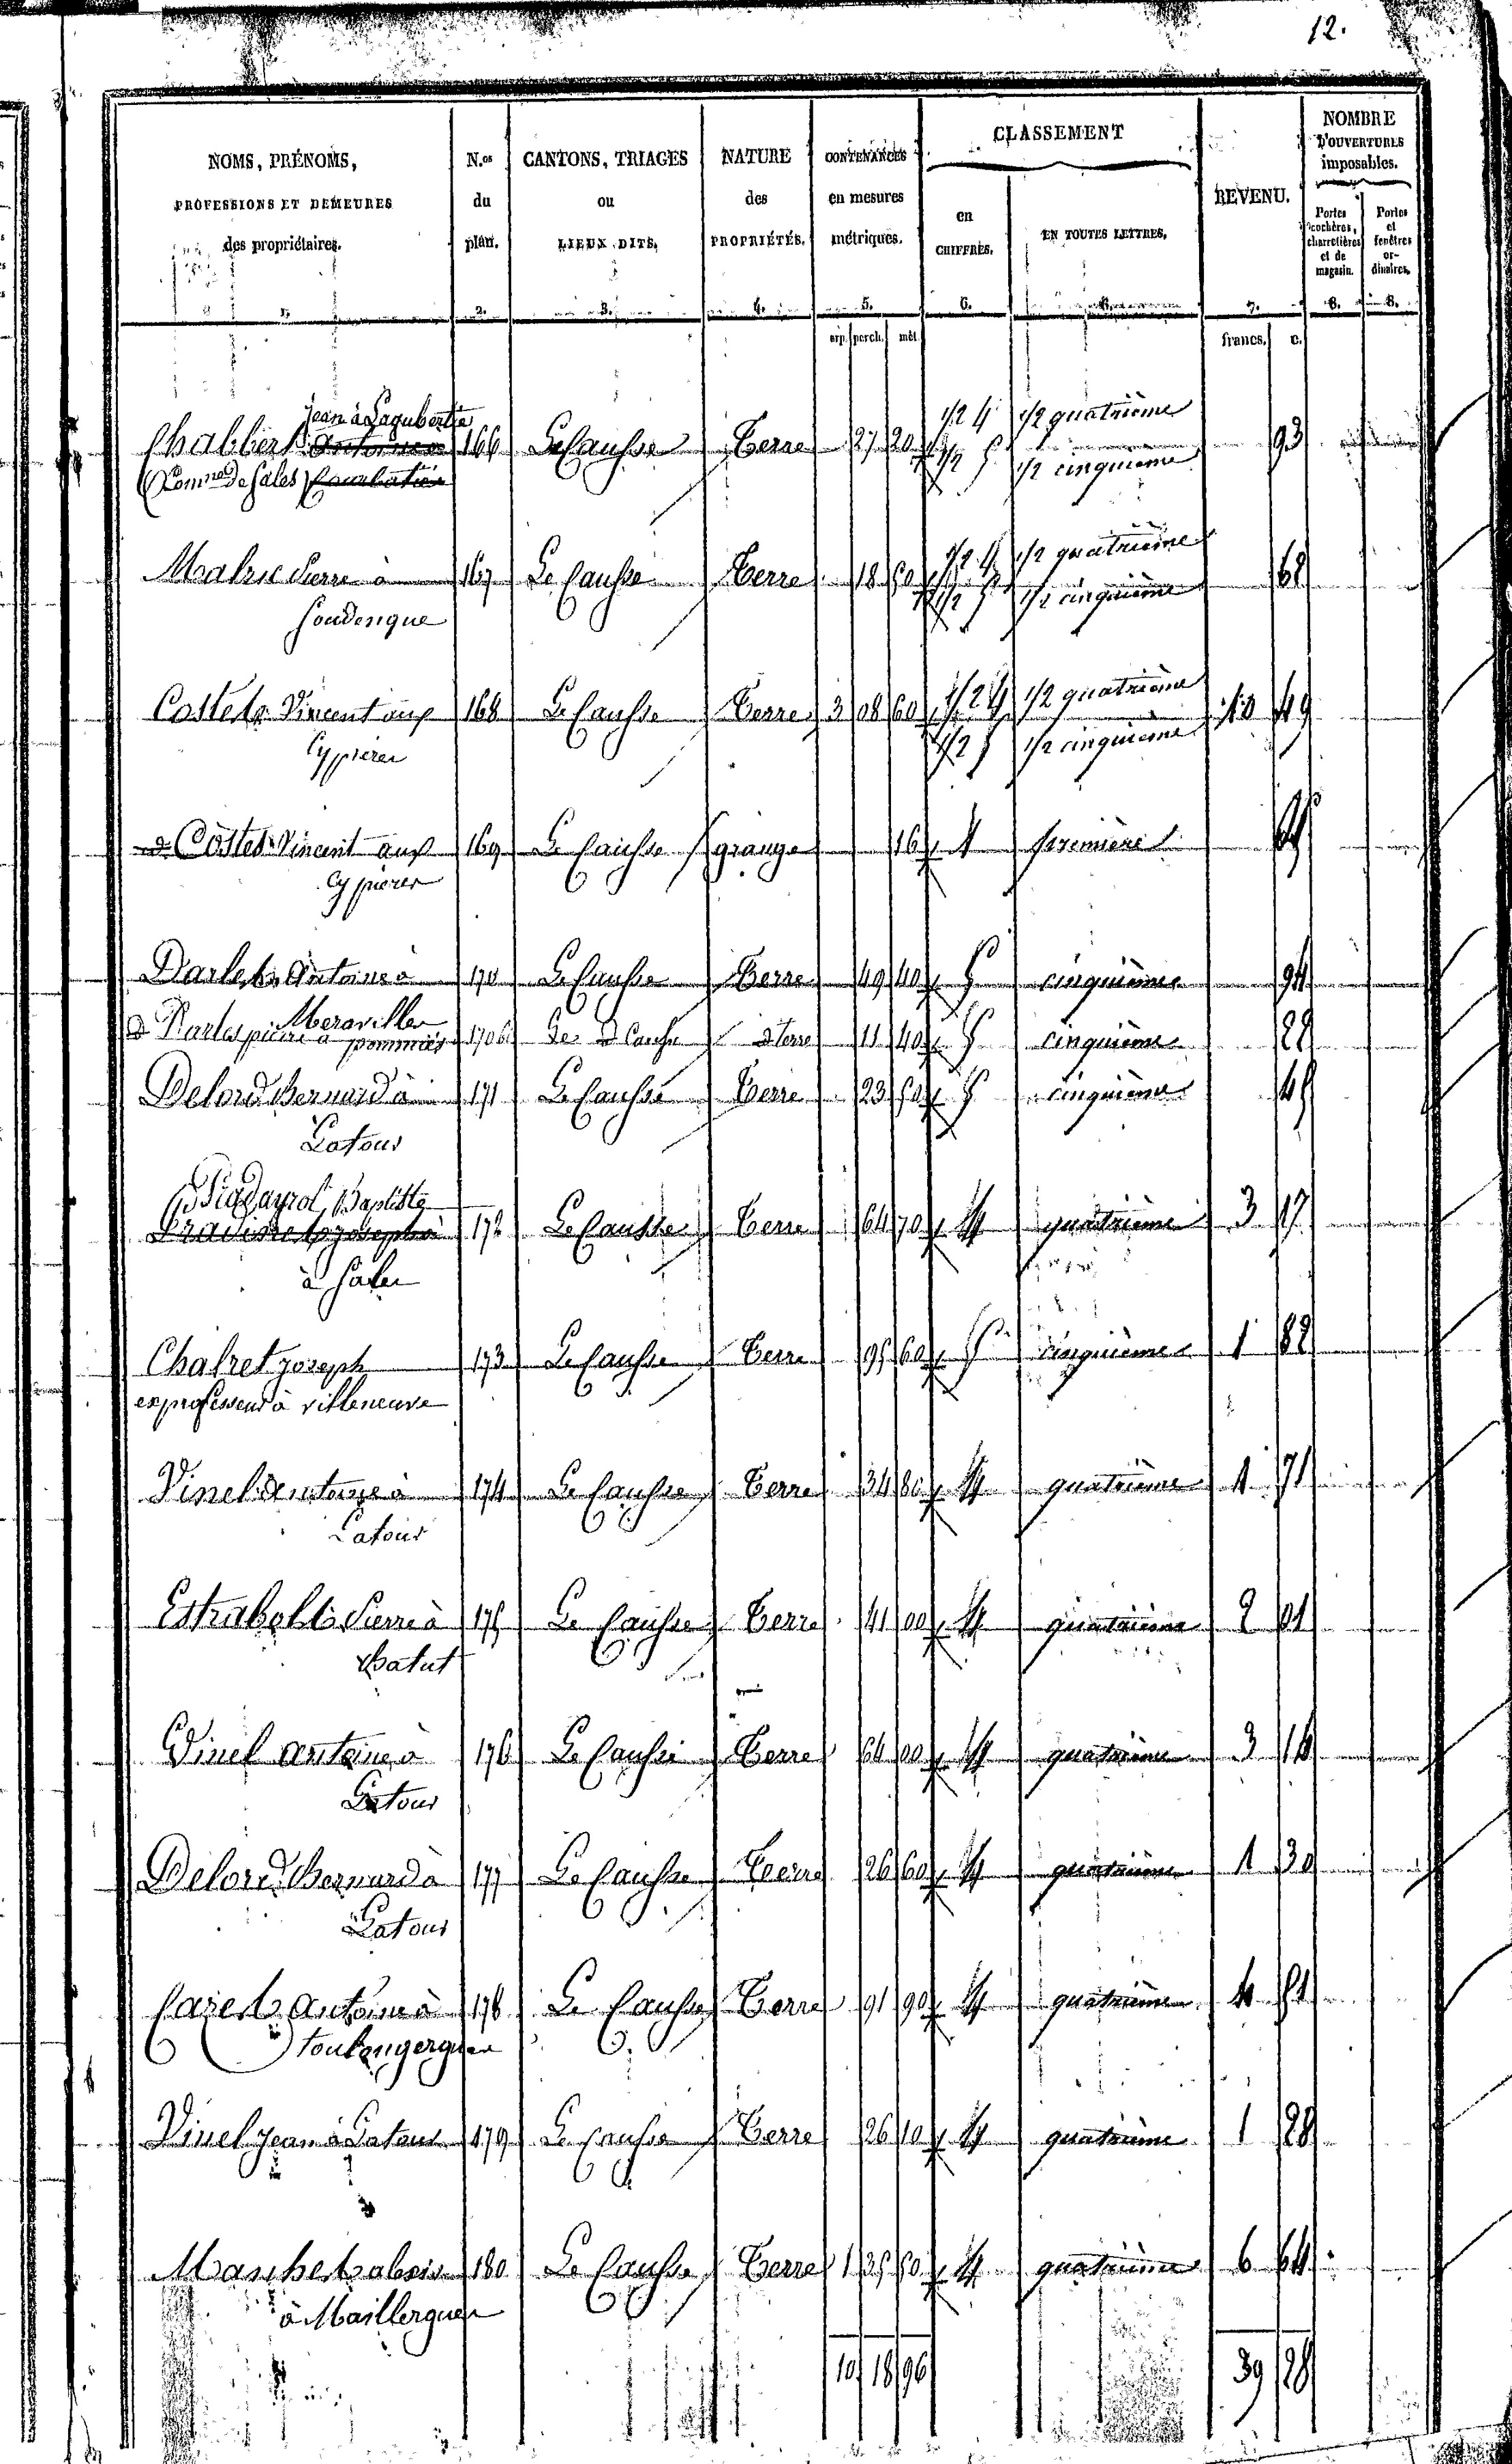 12.
NOMS, PRÉNOMS, PROFESSIONS ET DEMEURES des propriétaires. | N.os du plan. | CANTONS, TRIAGES ou LIEUX DITS. | NATURE des PROPRIÉTÉS. | CONTENANCES en mesures métriques. | CLASSEMENT en CHIFFRES. | EN TOUTES LETTRES. | REVENU. | NOMBRE D'OUVERTURES imposables. Portes cochères, charretières et de magasin. | Portes et fenêtres ordinaires.
1. 2. 3. 4. 5. 6. 6. 7. 8. 8.
arp. perch. mèt. francs. c.
Jean à
Chalbert Antoine à 166 Le Causse Terre 27 20 1/2 4 1/2 quatrième 93
de Sales 1/2 5 1/2 cinquième
Pierre à 167 Le Causse Terre 18 50 1/2 4 1/2 quatrième
1/2 5 1/2 cinquième
Costes Vincent aux 168 Le Causse Terre 3 08 60 1/2 4 1/2 quatrième 10 49
Cypierer 1/2 5 1/2 cinquième
d Costes Vincent aux 169 Le Causse grange 16 1 première
Cypierer
Darles Antoine à 170 Le Causse Terre 49 40 5 cinquième 94
Meraviller
d Darles pierre à 170 b Le d Causse d terre 11 40 5 cinquième 22
Delord Bernard à 171 Le Causse Terre 23 50 5 cinquième 45
Latour
Baptiste
Joseph à 172 Le Causse Terre 64 70 4 quatrième 3 17
à Sales
Chalret Joseph 173 Le Causse Terre 95 60 5 cinquième 1 82
exprofesseur à villeneuve
Vinel Antoine à 174 Le Causse Terre 34 80 4 quatrième 1 71
Latour
Estrabols Pierre à 175 Le Causse Terre 41 00 4 quatrième 2 01
Batut
Vinel Antoine à 176 Le Causse Terre 64 00 4 quatrième 3 14
Latour
Delord Bernard à 177 Le Causse Terre 26 60 4 quatrième 1 30
Latour
Antoine à 178 Le Causse Terre 91 90 4 quatrième 4 51
toulongerguer
Vinel Jean à Latour 179 Le Causse Terre 26 10 4 quatrième 1 28
180 Le Causse Terre 1 35 50 4 quatrième 6 64
à Maillerguer
10 18 96 39 28